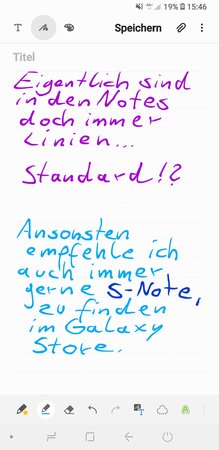 19% 15:46
T Speichern
Titel
Eigentlich sind
in den Notes
doch immer
Linien...
Standard!?
Ansonsten
empfehle ich
auch immer
gerne S-Note,
zu finden
im Galaxy
Store.